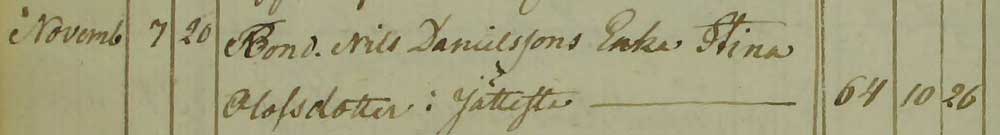 Novemb 7 20 Bond. Nils Danielssons Enka Stina
Olofsdotter i Jättesta — 64 10 26